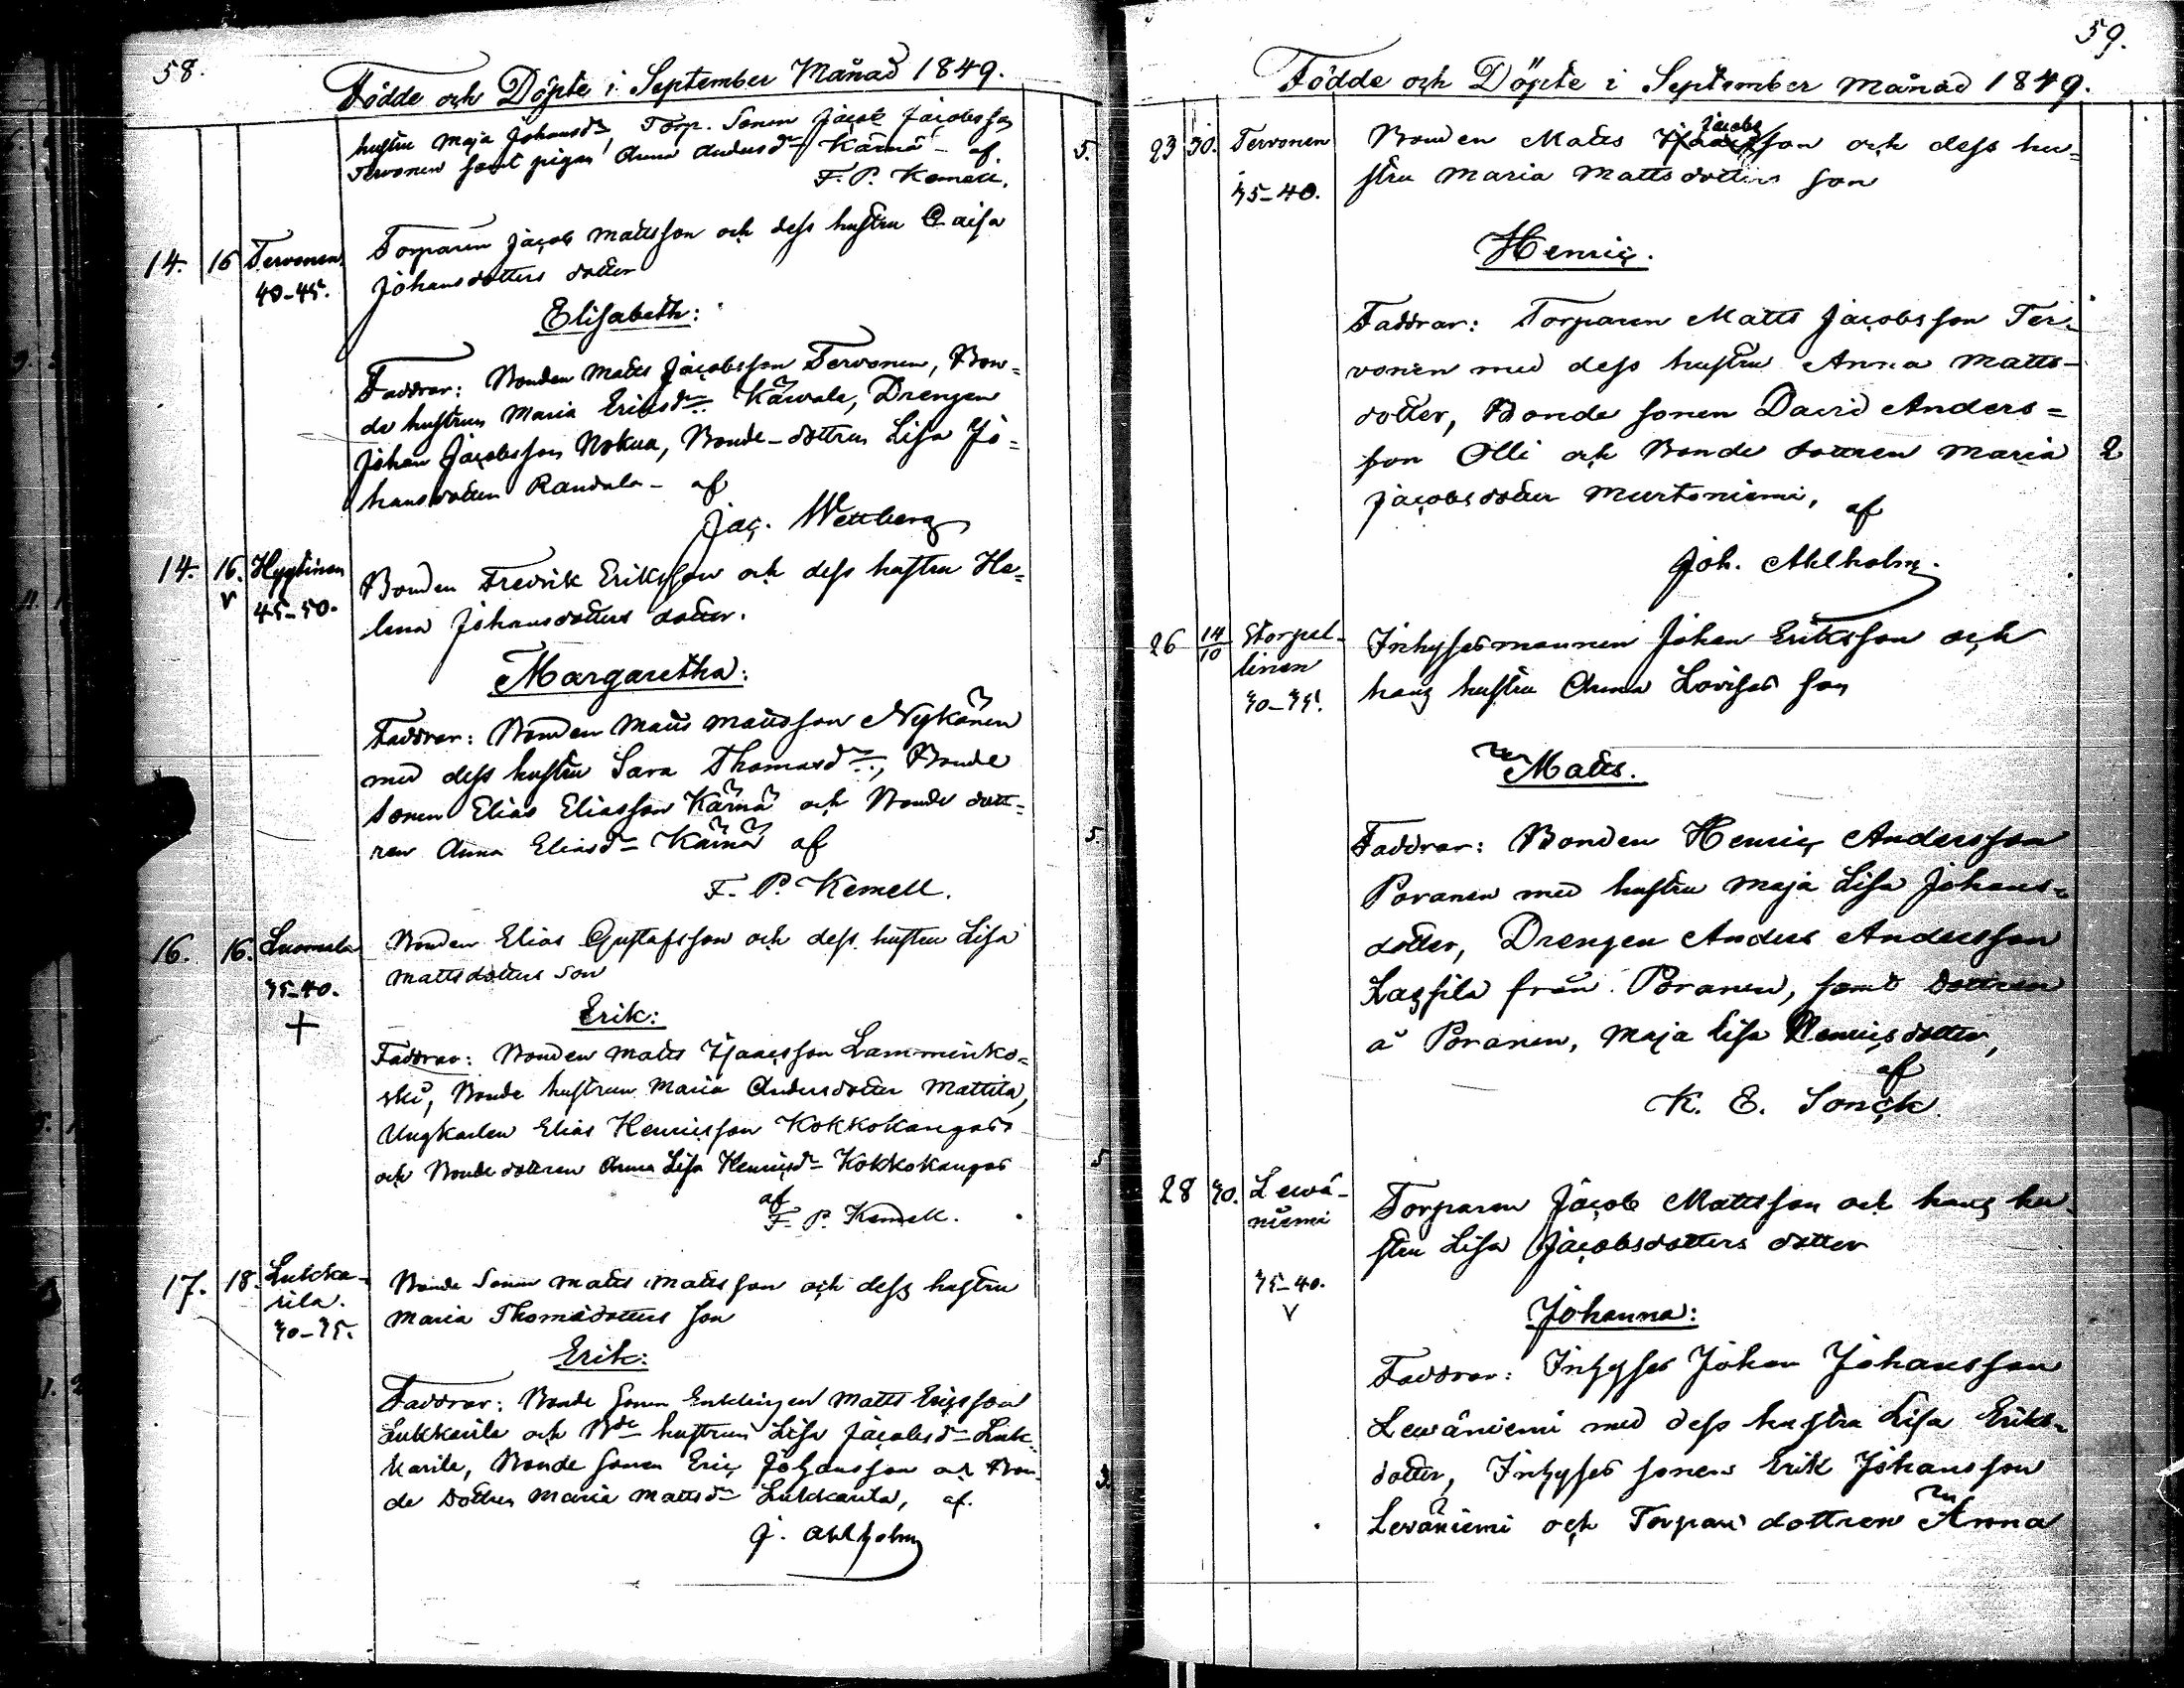 58.
Födde och Döpte i September Månad 1849.
hustru Maja Johansdr Torp. Sonen Jacob Jacobsson
Tervonen samt pigan Anna Andersdr Kärnä - af
5.
F. P. Kemell.
14. 16 Tervonen
40-45.
Torparen Jacob Mattsson och dess hustru Caisa
Johansdotters dotter
Elisabeth:
Faddrar: Bonden Matts Jacobsson Tervonen, Bon=
de hustrun Maria Eriksdr Käwala, Drengen
Johan Jacobsson Nokua, Bonde-dottren Lisa Jo=
hansdotter Randala - af
Jac. Wettberg
14. 16. Hyytinen
v 45-50.
Bonden Fredrik Eriksson och dess hustru He=
lena Johansdotters dotter.
Margaretha:
Faddrar: Bonden Matts Mattsson Nykänen
med dess hustru Sara Thomasdr, Bonde
sonen Elias Eliasson Kärnä och Bonde dott=
ren Anna Eliasdr Kärnä af
5.
F. P. Kemell.
16. 16. Luomala
35-40.
+
Bonden Elias Gustafsson och dess hustru Lisa
Mattsdotters son
Erik:
Faddrar: Bonden Matts Isaacsson Lamminko=
ski, Bonde hustrun Maria Andersdotter Mattila,
Ungkarlen Elias Henricsson Kokkokangas
och Bonde dottren Anna Lisa Henricsdr Kokkokangas
5
af
F. P. Kemell.
17. 18. Lukka-
rila.
30-35.
Bonde Sonen Matts Mattsson och dess hustru
Maria Thomasdotters son
Erik:
Faddrar: Bonde Sonen Enklingen Matts Ericsson
Lukkarila och Bde hustrun Lisa Jacobsdr Luk=
karila, Bonde sonen Eric Johansson och Bon=
de Dottren Maria Mattsdr Lukkarila, af.
3.
J. Ahlholm
59.
Födde och Döpte i September månad 1849.
23 30. Tervonen
35-40.
Jacobs
Bonden Matts Isaacsson och dess hu=
stru Maria Mattsdotters son
Henric.
Faddrar: Torparen Matts Jacobsson Ter=
vonen med dess hustru Anna Matts-
dotter, Bonde sonen David Anders=
son Olli och Bonde dottren Maria
2
Jacobsdotter Murtoniemi, af
Joh. Ahlholm.
26 14/10 Storpel-
linen
30-35.
Inhysesmannen Johan Eriksson och
hans hustru Anna Lovisas son
Matts.
Faddrar: Bonden Henric Andersson
Poranen med hustru Maja Lisa Johans=
dotter, Drengen Anders Andersson
Kassila från Poranen, samt Dottren
å Poranen, Maja Lisa Henricsdotter,
af
K. E. Sonck.
28 30. Lewä-
niemi
35-40.
v
Torparen Jacob Mattsson och hans hu=
stru Lisa Jacobsdotters dotter
Johanna:
Faddrar: Inhyses Johan Johansson
Lewäniemi med dess hustru Lisa Eriks=
dotter, Inhyses sonen Erik Johansson
Lewäniemi och Torpare dottren Anna